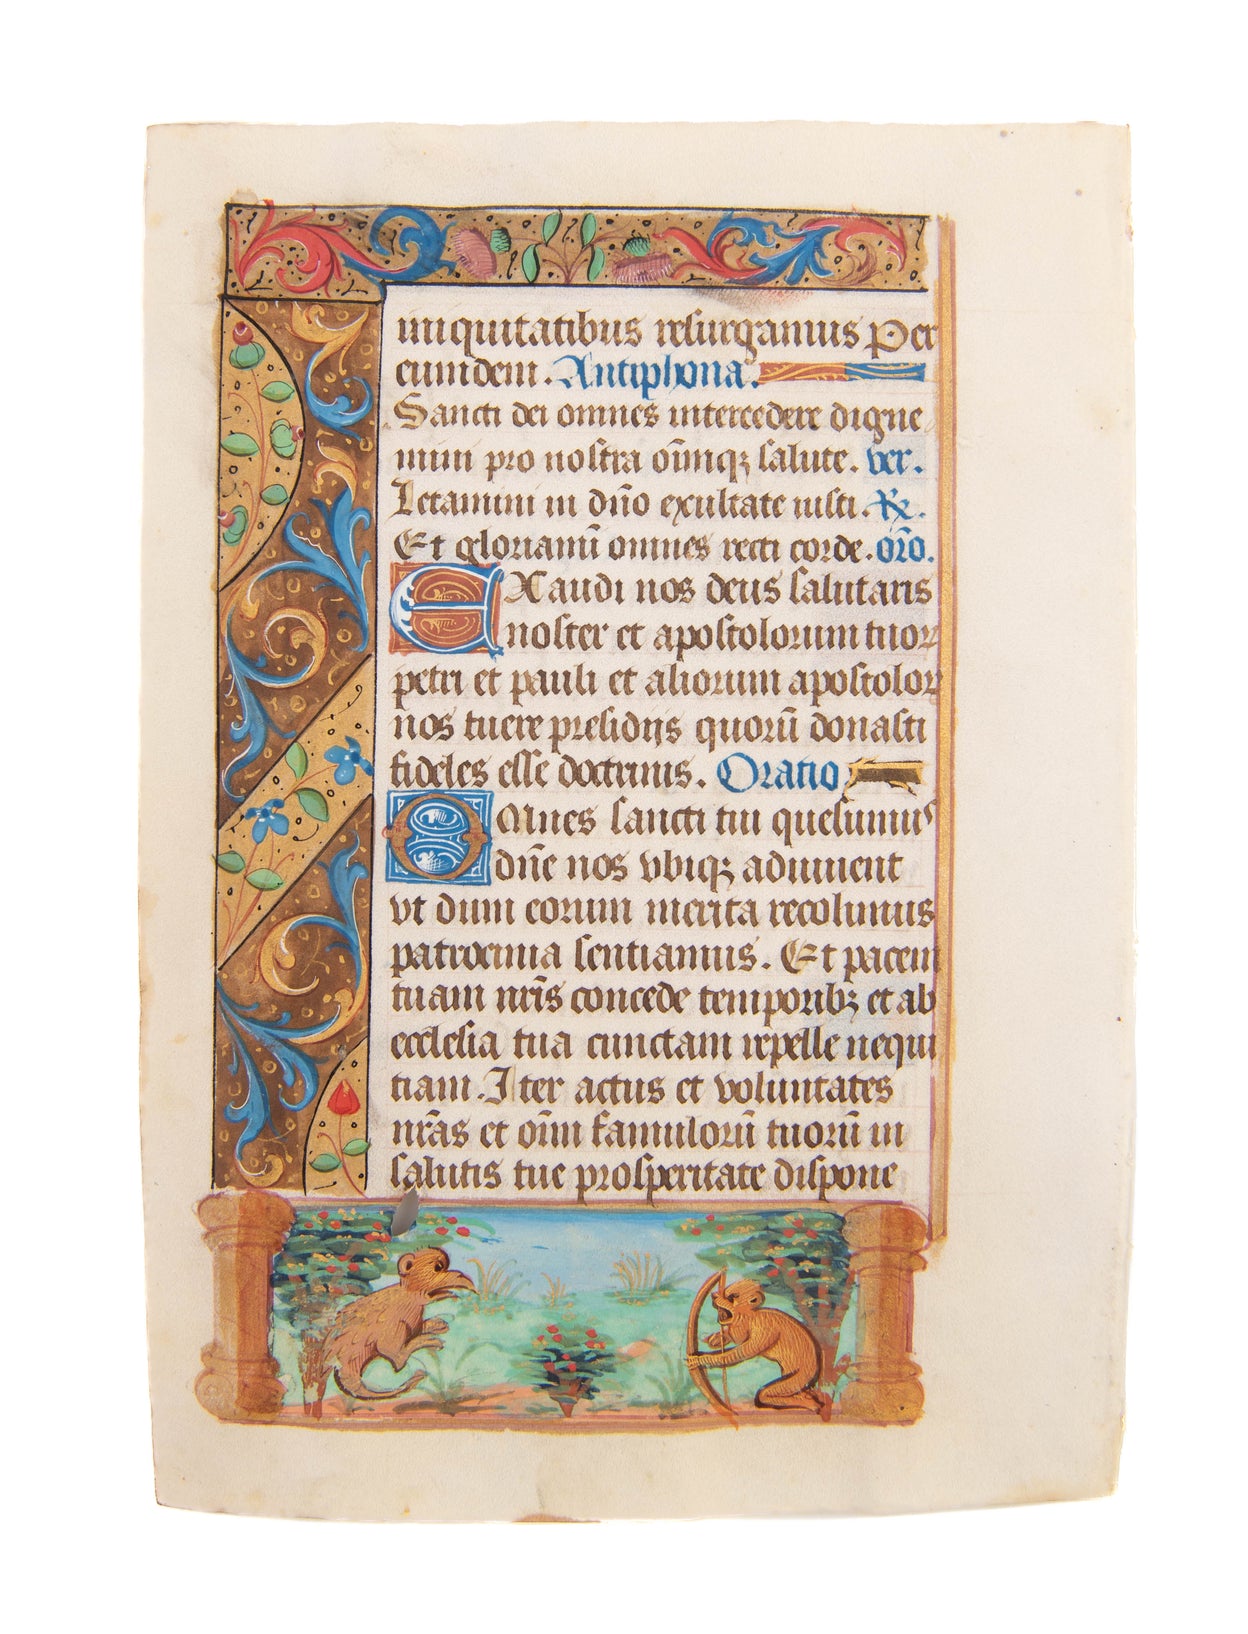 iniquitatibus resurgamus Per
eumdem. Antiphona.
Sancti dei omnes intercedere digne
mini pro nostra om̄inq; salute. ver.
Letamini in dn̄o exultate iusti. ℞.
Et gloriamī omnes recti corde. or̄o.
EXaudi nos deus salutaris
noster et apostolorum tuoꝝ
petri et pauli et aliorum apostoloꝝ
nos tuere presidijs quorū donasti
fideles esse doctrinis. Oratio
OMnes sancti tui quesumus
dn̄e nos vbiq; adiuuent
vt dum eorum merita recolimus
patrocinia sentiamus. Et pacem
tuam nr̄is concede temporib; et ab
ecclesia tua cunctam repelle nequi
tiam. Iter actus et voluntates
nr̄as et om̄i famulorū tuorū in
salutis tue prosperitate dispone